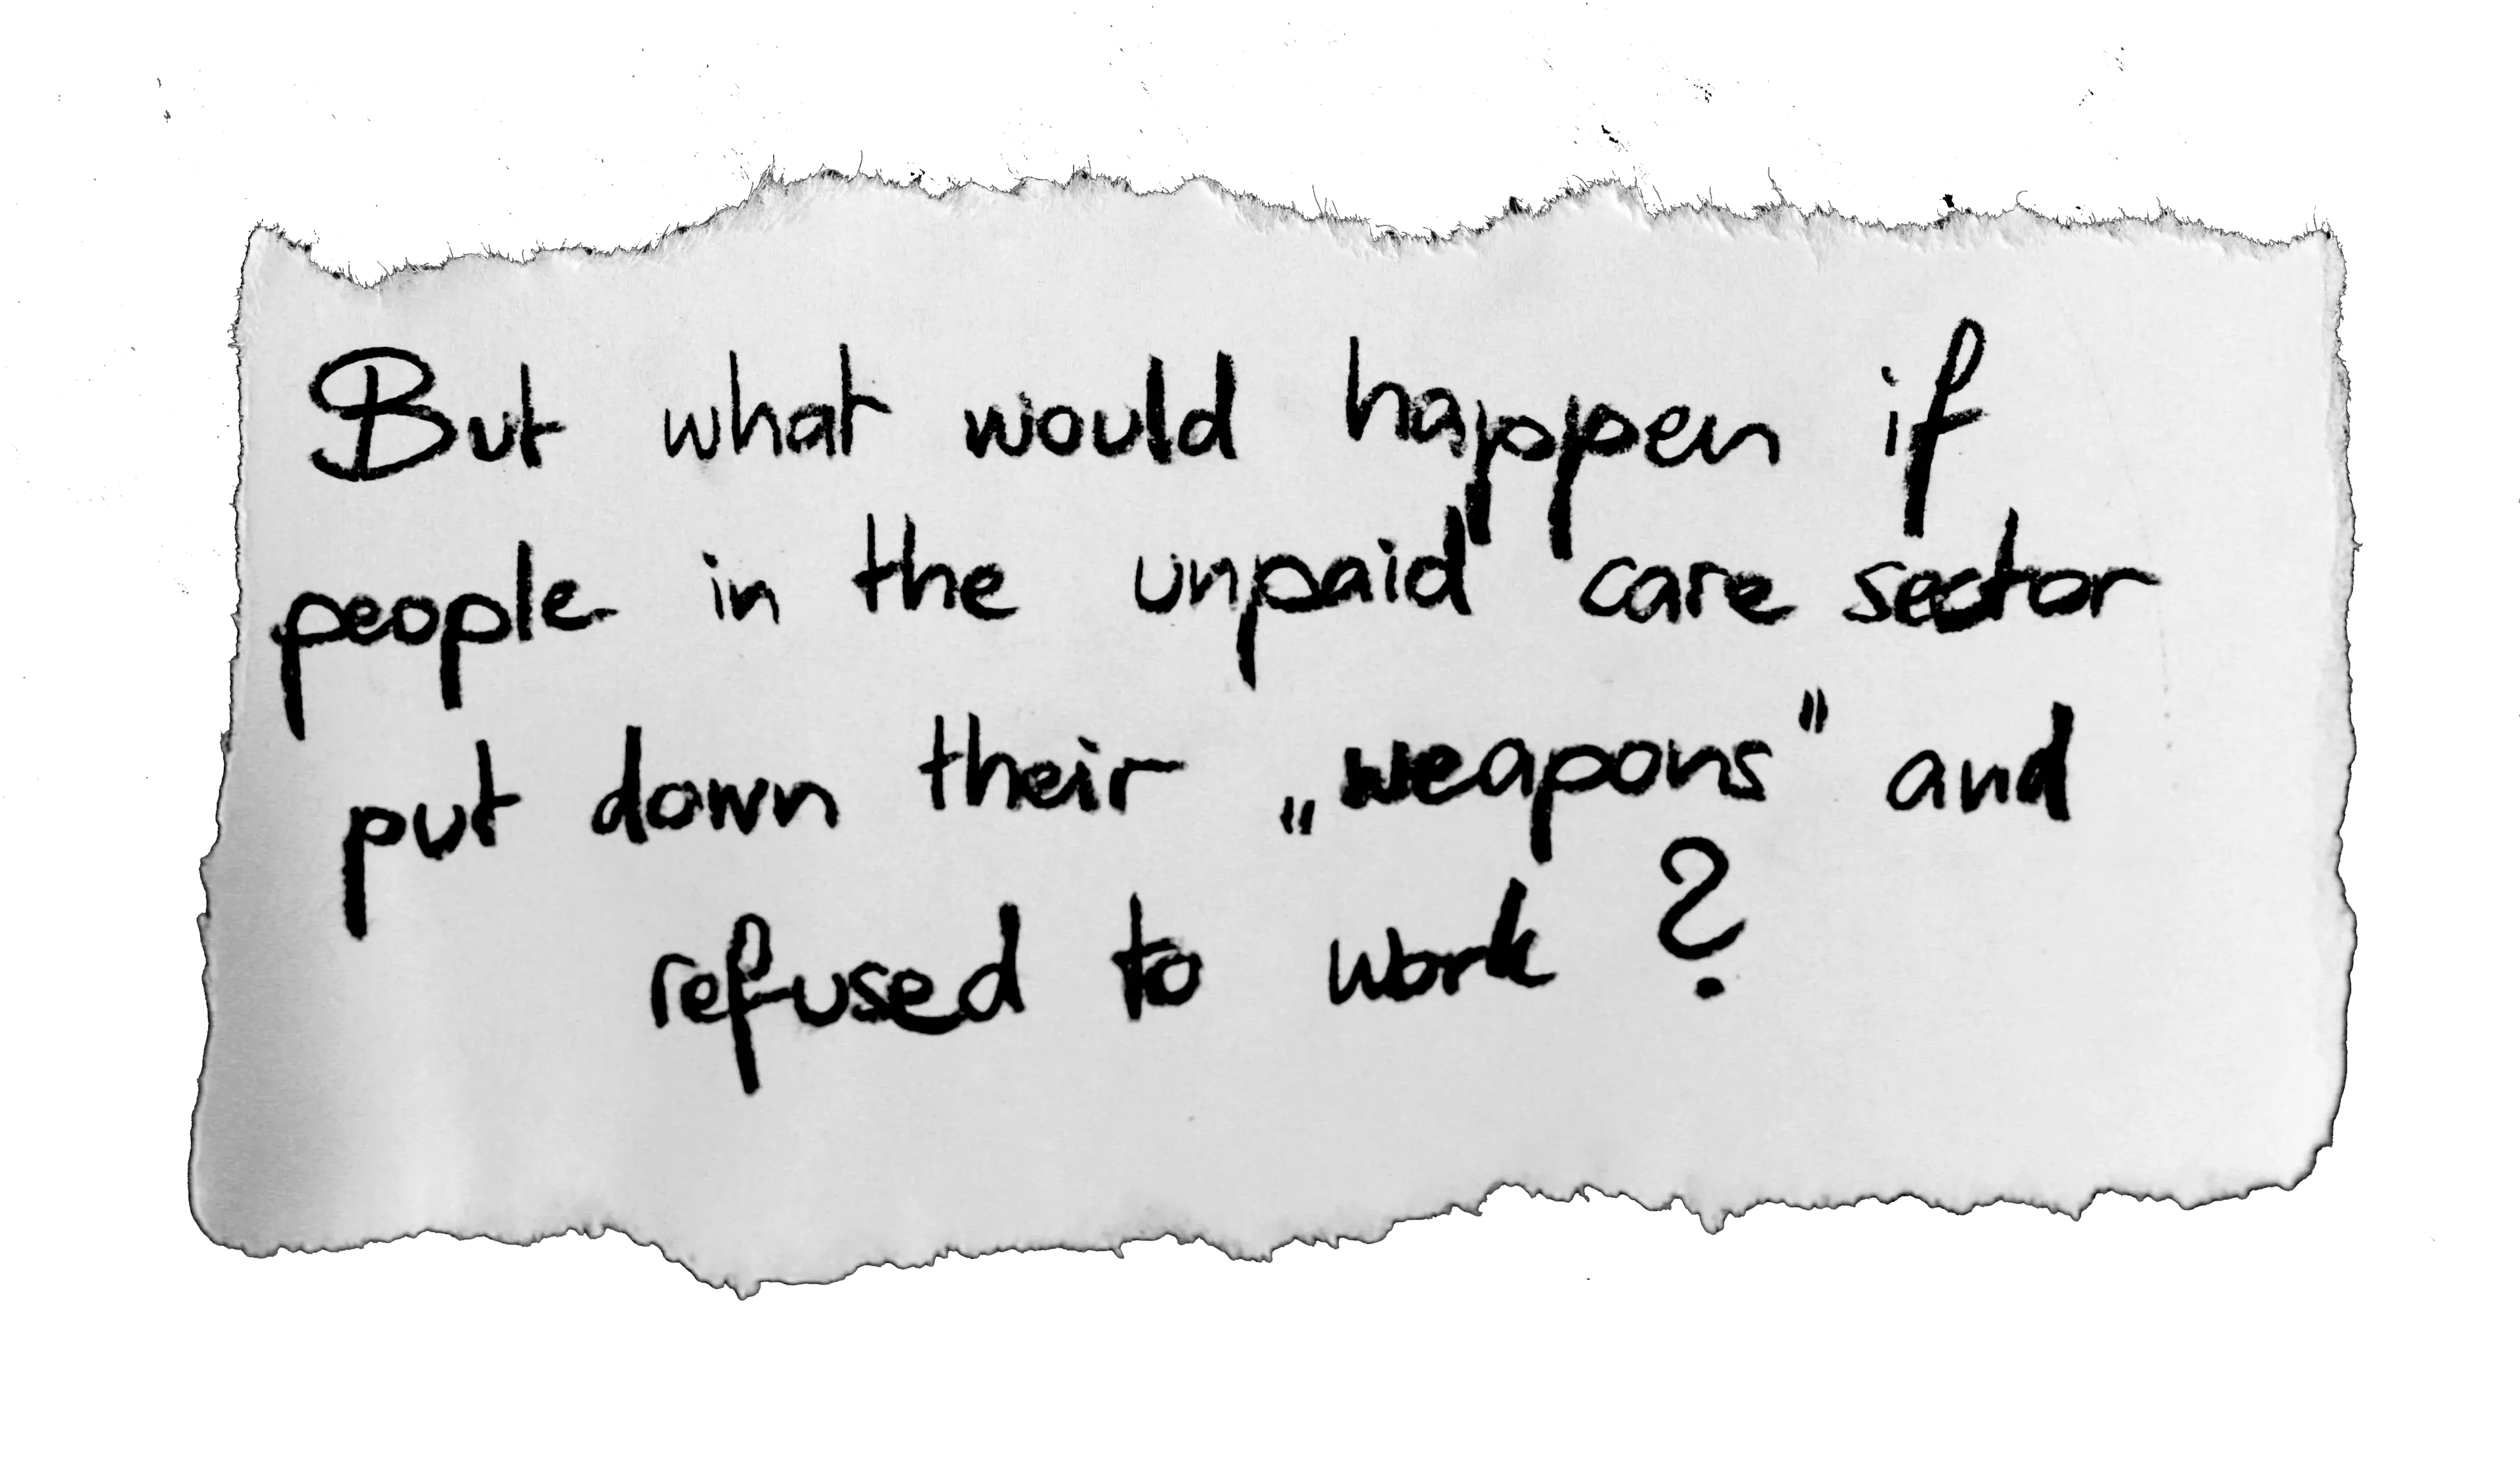 But what would happen if
people in the unpaid care sector
put down their „weapons" and
refused to work?